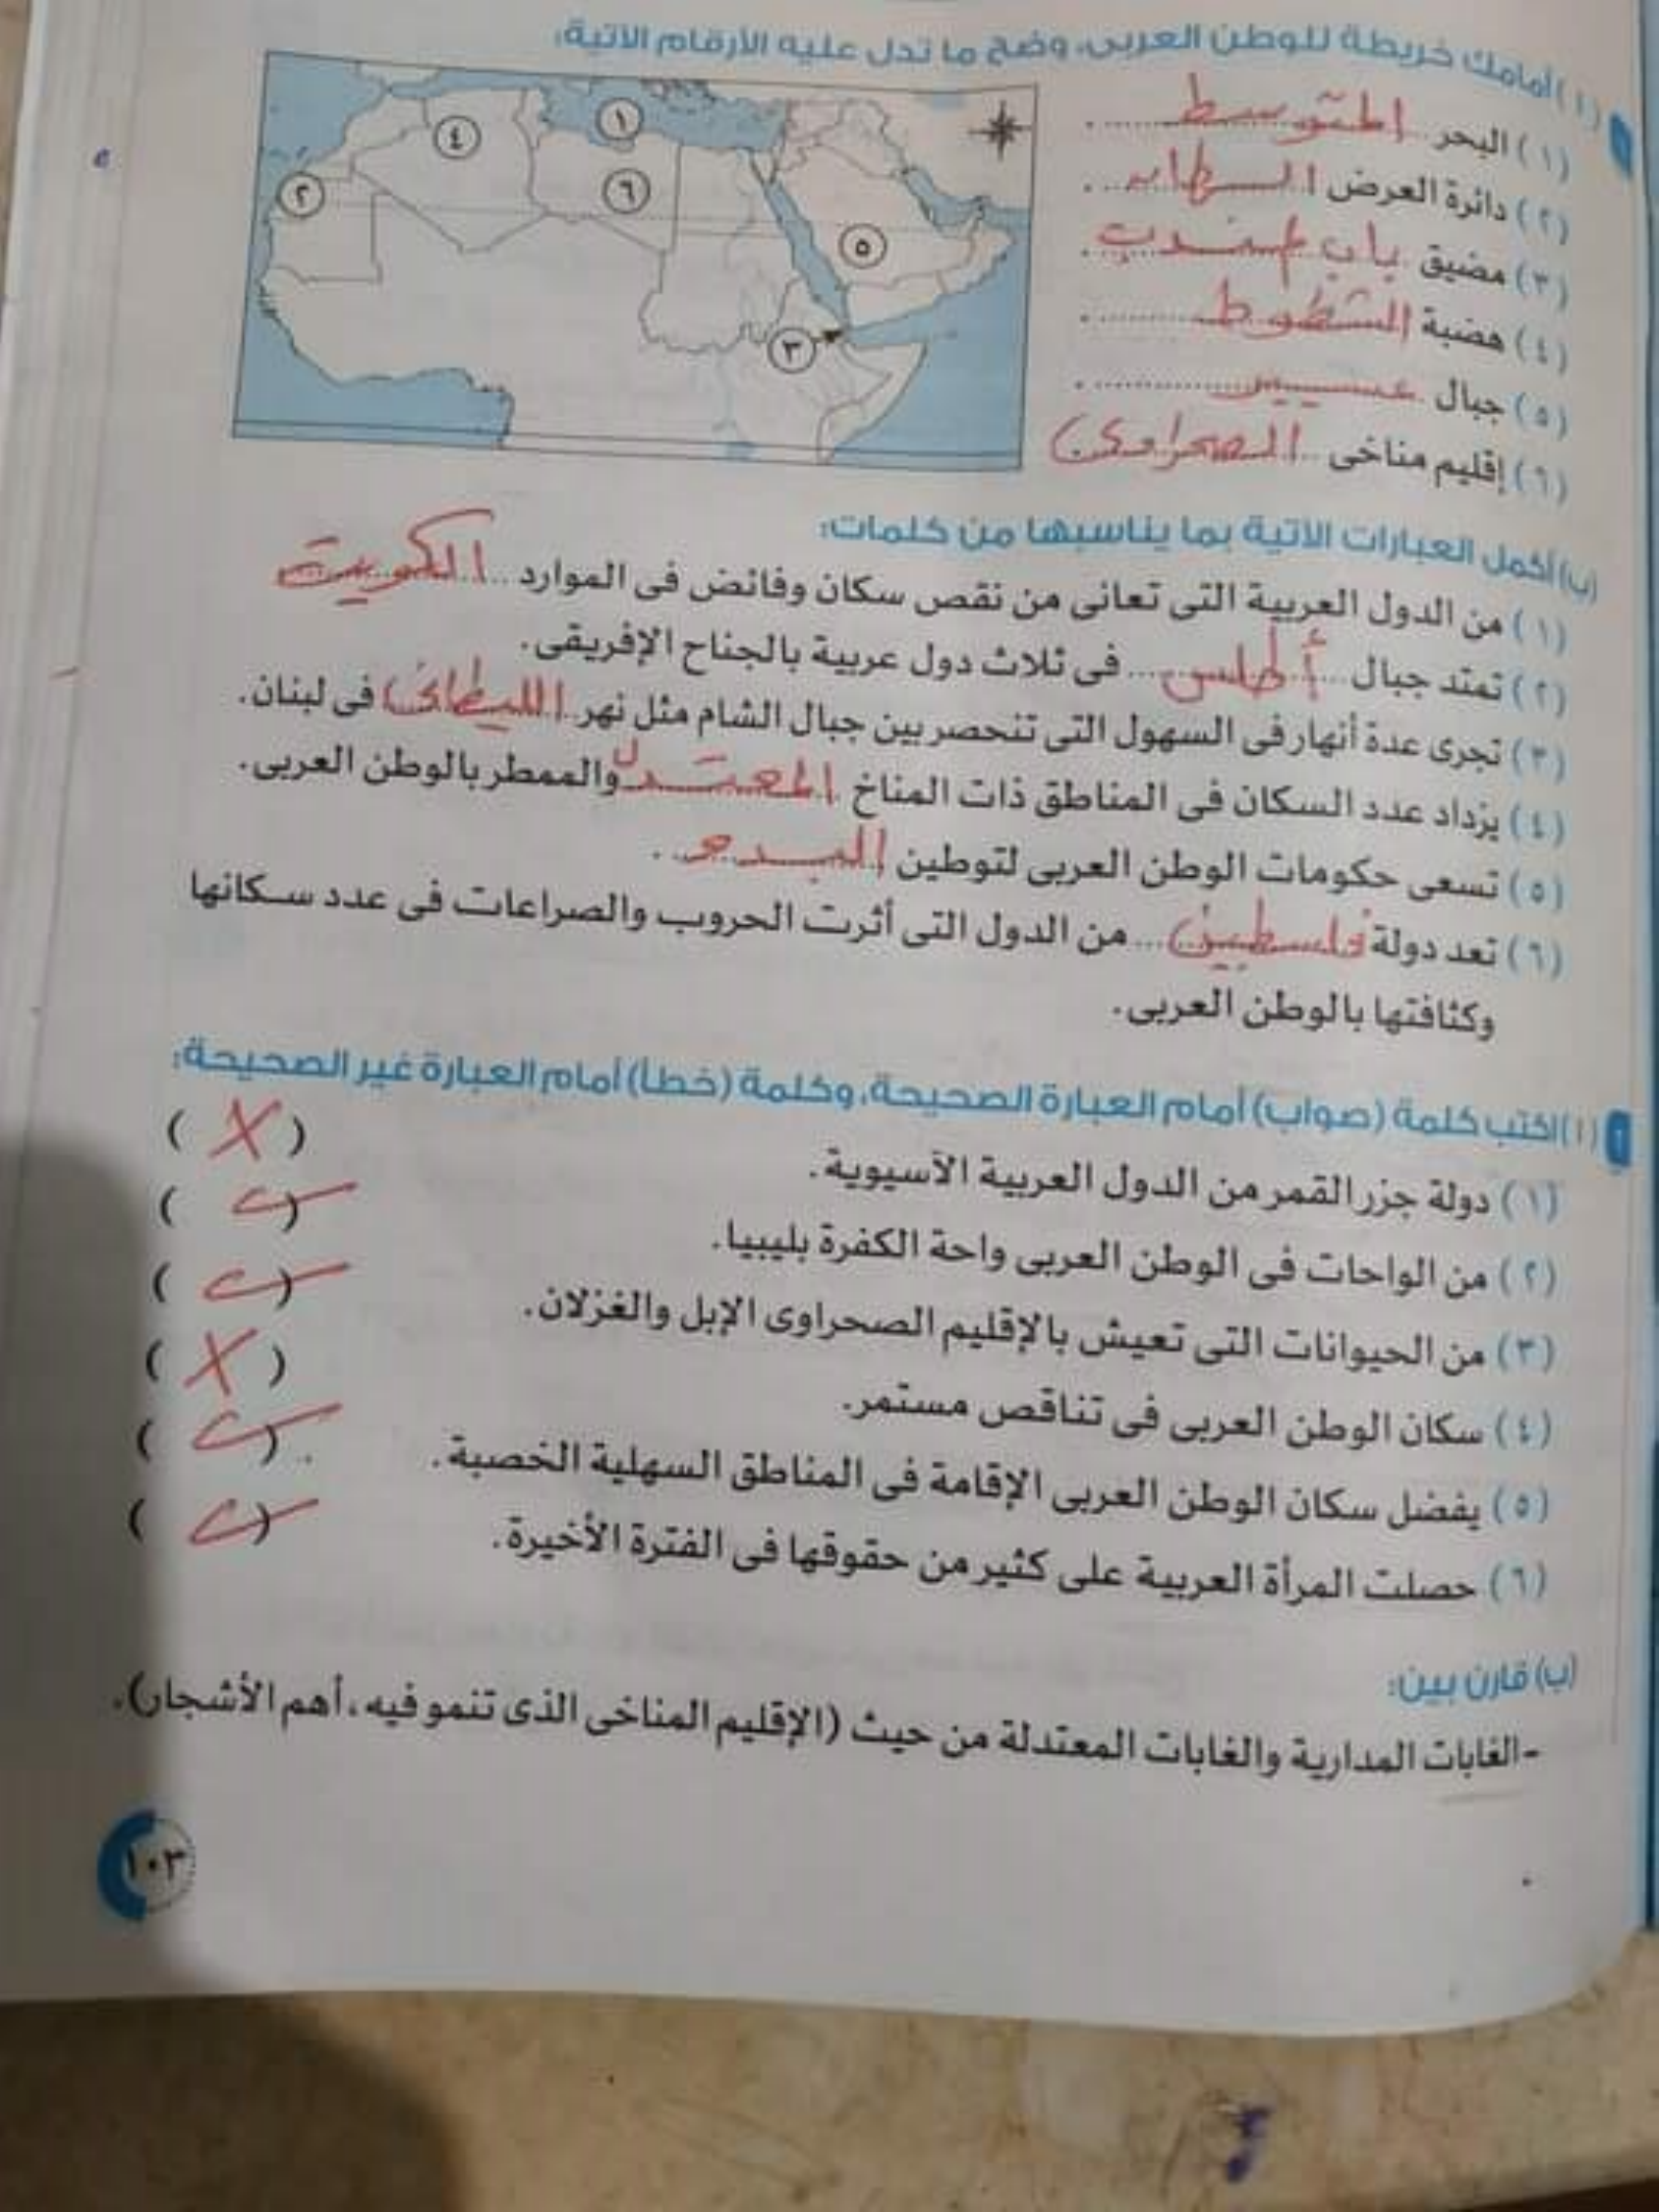 ١ (أ) أمامك خريطة للوطن العربى، وضح ما تدل عليه الأرقام الآتية:
(١) البحر المتوسط
(٢) دائرة العرض
(٣) مضيق باب المندب
(٤) هضبة الشطوط
(٥) جبال عسير
(٦) إقليم مناخى الصحراوى
١
٢
٣
٤
٥
٦
(ب) أكمل العبارات الآتية بما يناسبها من كلمات:
(١) من الدول العربية التى تعانى من نقص سكان وفائض فى الموارد الكويت
(٢) تمتد جبال أطلس فى ثلاث دول عربية بالجناح الإفريقى.
(٣) تجرى عدة أنهار فى السهول التى تنحصر بين جبال الشام مثل نهر الليطانى فى لبنان.
(٤) يزداد عدد السكان فى المناطق ذات المناخ المعتدل والممطر بالوطن العربى.
(٥) تسعى حكومات الوطن العربى لتوطين البدو.
(٦) تعد دولة فلسطين من الدول التى أثرت الحروب والصراعات فى عدد سكانها
وكثافتها بالوطن العربى.
٢ (أ) اكتب كلمة (صواب) أمام العبارة الصحيحة، وكلمة (خطأ) أمام العبارة غير الصحيحة:
(١) دولة جزر القمر من الدول العربية الآسيوية. (X)
(٢) من الواحات فى الوطن العربى واحة الكفرة بليبيا. (✓)
(٣) من الحيوانات التى تعيش بالإقليم الصحراوى الإبل والغزلان. (✓)
(٤) سكان الوطن العربى فى تناقص مستمر. (X)
(٥) يفضل سكان الوطن العربى الإقامة فى المناطق السهلية الخصبة. (✓)
(٦) حصلت المرأة العربية على كثير من حقوقها فى الفترة الأخيرة. (✓)
(ب) قارن بين:
-الغابات المدارية والغابات المعتدلة من حيث (الإقليم المناخى الذى تنمو فيه، أهم الأشجار).
١٠٣